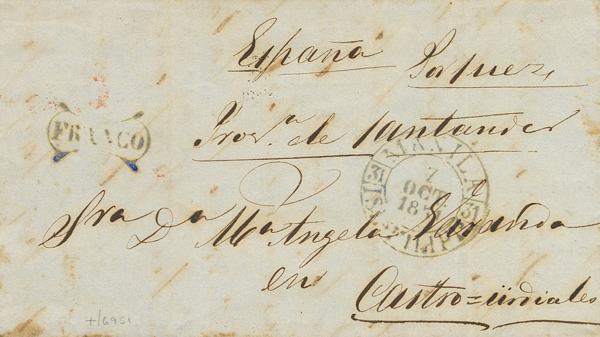 España
Por Suez,
Prov.ª de Santander
FRANCO
MANILA
7
OCT
18
ISL. FILIPIN.
31
31
Sra Dª Mª Angela
en
Castro=Urdiales
+/6951